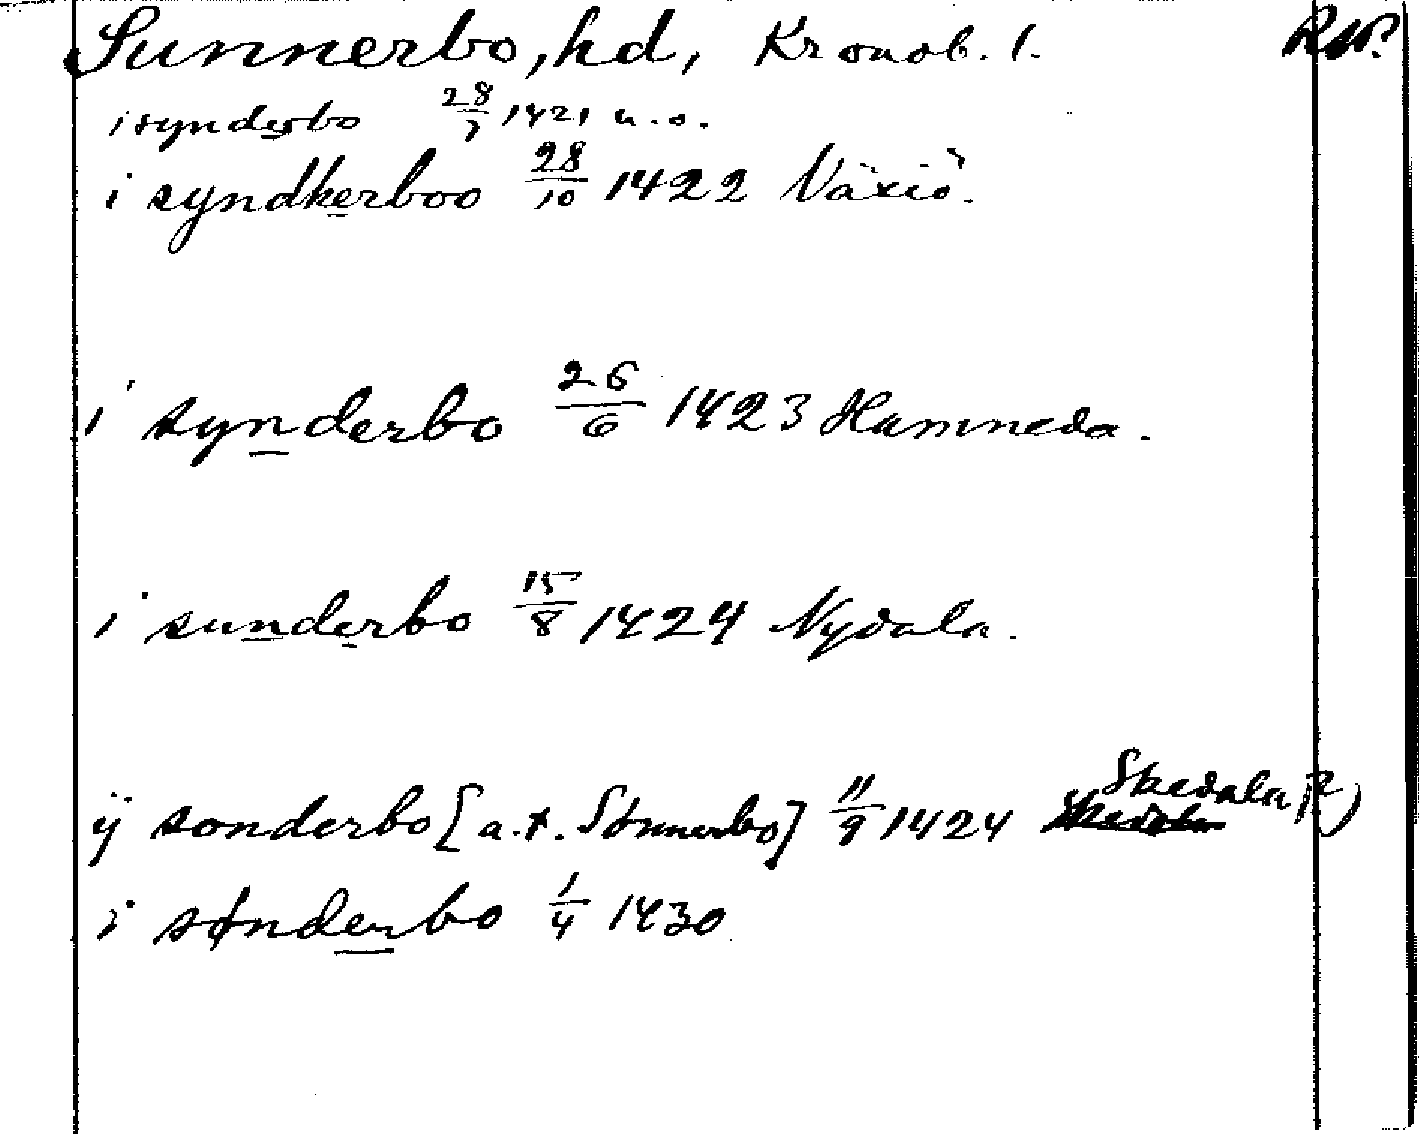 Sunnerbo, hd, Kronob. l. RAP.
i synderbo 28/7 1421 u.o.
i syndherboo 28/10 1422 Växiö.
i synderbo 26/6 1423 Hamneda.
i sunderbo 15/8 1424 Nydala.
ÿ sonderbo [a.t. Sönnerbo] 11/9 1424 Skedala (?)
i sønderbo 1/4 1430